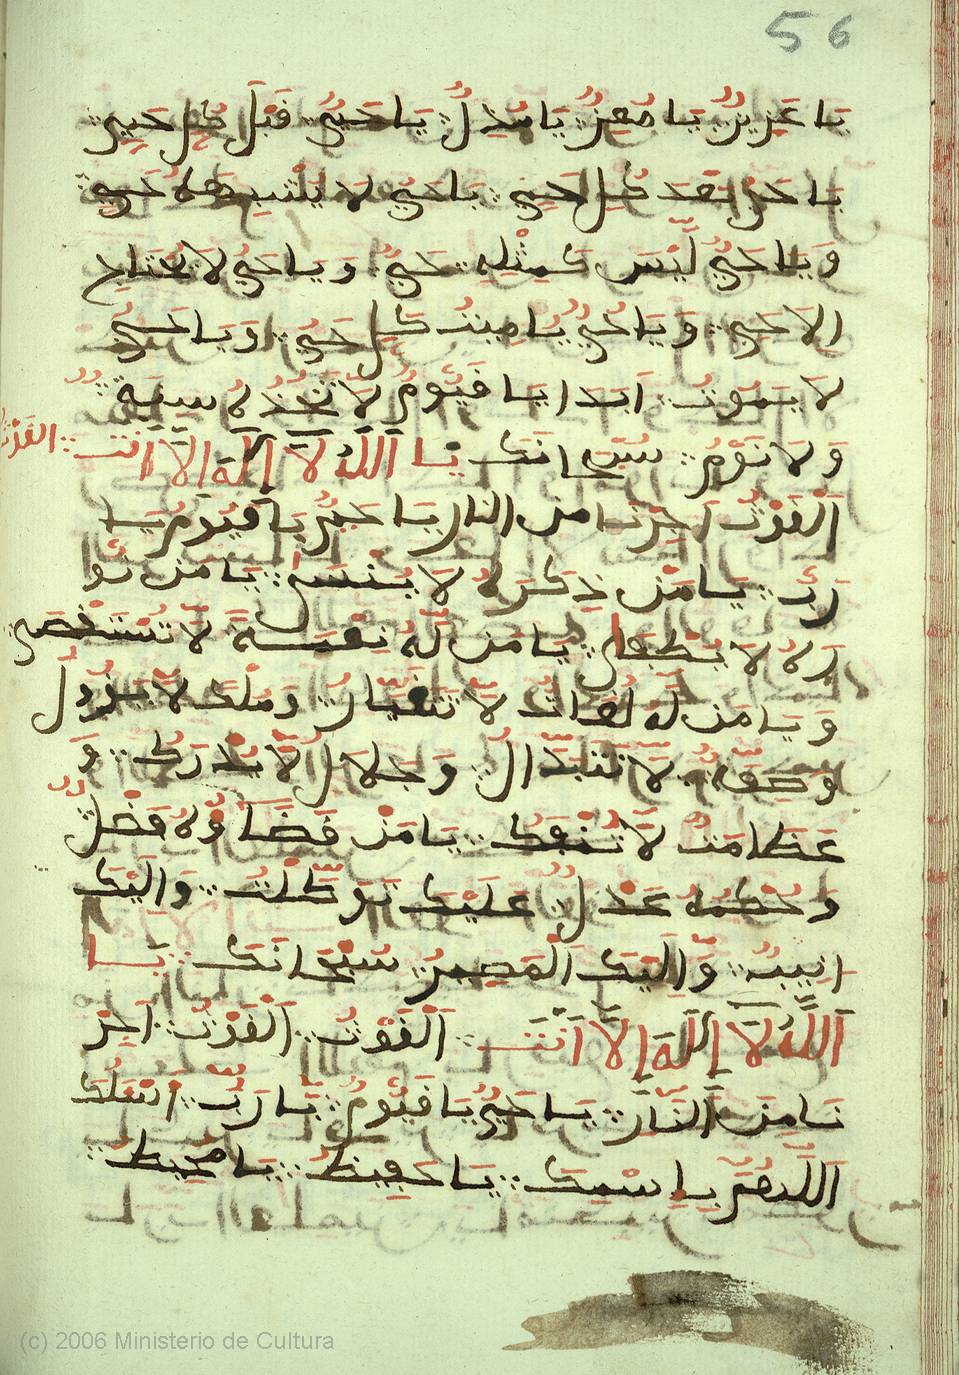 56
يَا عَزِيزُ يَا مُعِزُّ يَا مُذِلُّ يَا حَيُّ قَبْلَ كُلِّ حَيٍّ
يَا حَيُّ بَعْدَ كُلِّ حَيٍّ يَا حَيُّ لَا يُشْبِهُهُ حَيٌّ
وَيَا حَيُّ لَيْسَ كَمِثْلِهِ حَيٌّ وَيَا حَيُّ لَا يَحْتَاج
اِلَا حَيٍّ وَيَا حَيُّ يُمِيتُ كُلَّ حَيٍّ وَيَا حَيُّ
لَا يَمُوتُ اَبَدًا يَا قَيُّومُ لَا تَأْخُذُهُ سِنَةٌ
وَلَا نَوْمٌ سُبْحَانَكَ يَا اَللَّهُ لَا إِلَهَ إِلَّا اَنْتَ الْغَوْثُ
اَلْغَوْثُ اَجِرْنَا مِنَ النَّارِ يَا حَيُّ يَا قَيُّومُ يَا
رَبِّ يَا مَنْ ذِكْرُهُ لَا يُنْسَى يَا مَنْ نُو
رُهُ لَا يُطْفَى يَا مَنْ لَهُ نِعْمَةٌ لَا تُسْتَحْصَى
وَيَا مَنْ لَهُ لَا تَغْيَارُ وَمُلْكٌ لَا يَزُولُ
وَصِفَةٌ لَا تَتَبَدَّالُ وَجَلَالٌ لَا يُدْرَكُ وَ
عَظَامَتُ لَا يَا مَنْ قَضَاؤُهُ فَضْلٌ
وَحُكْمُهُ عَدْلٌ عَلَيْكَ تَوَكَّلْتُ وَاِلَيْكَ
اُنِيبُ وَاِلَيْكَ الْمَصِيرُ سُبْحَانَكَ يَا
اَللَّهُ لَا إِلَهَ إِلَّا اَنْتَ اَلْغَوْثُ اَلْغَوْثُ اَجِرْ
نَا مِنَ النَّارِ يَا حَيُّ يَا قَيُّومُ يَا رَبِّ اَسْئَلُكَ
اَللَّهُمَّ بِاسْمِكَ يَا حَفِيظُ يَا مُحِيطُ
(c) 2006 Ministerio de Cultura